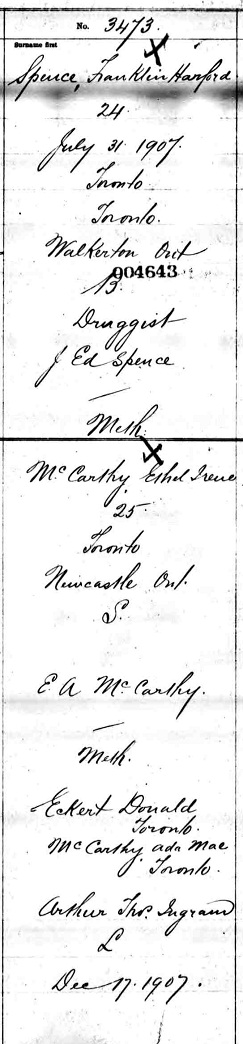 No. 3473.
Surname first
X
Spence, Franklin Harford
24
July 31 1907.
Toronto
Toronto.
Walkerton Ont
904643
B.
Druggist
J Ed Spence
—
Meth.
X
McCarthy Ethel Irene
25
Toronto
Newcastle Ont.
S.
E A McCarthy.
—
Meth.
Eckert Donald
Toronto.
McCarthy ada Mae
Toronto.
Arthur Thos. Ingram
L
Dec 17. 1907.